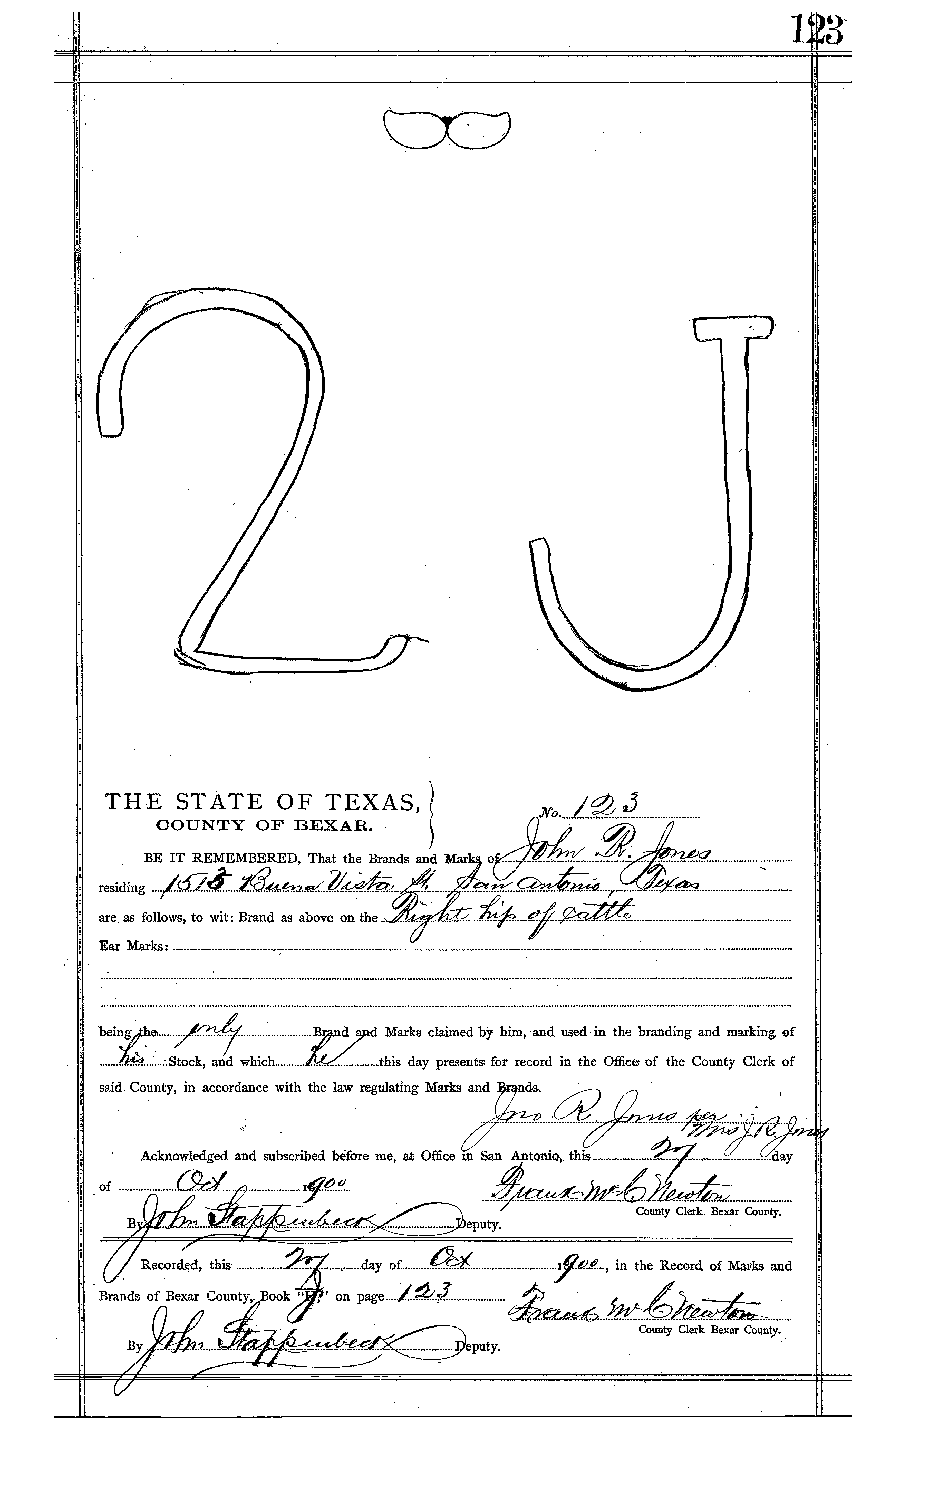 123
2 J
THE STATE OF TEXAS,
COUNTY OF BEXAR.
No. 123
BE IT REMEMBERED, That the Brands and Marks of John R. Jones
residing 1513 Buena Vista St. San Antonio, Texas
are as follows, to wit: Brand as above on the Right hip of cattle
Ear Marks:
being the only Brand and Marks claimed by him, and used in the branding and marking of
his Stock, and which he this day presents for record in the Office of the County Clerk of
said County, in accordance with the law regulating Marks and Brands.
Jno R. Jones per
Mrs J. R. Jones
Acknowledged and subscribed before me, at Office in San Antonio, this day
of Oct 1900
Frank McC Newton
County Clerk Bexar County.
By John Stappenbeck Deputy.
Recorded, this day of Oct 1900, in the Record of Marks and
Brands of Bexar County, Book on page 123
Frank McC Newton
County Clerk Bexar County.
By John Stappenbeck Deputy.